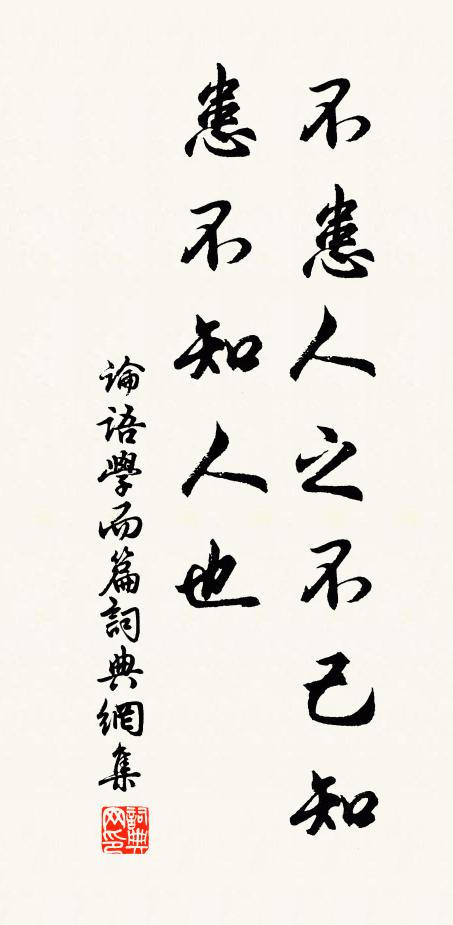 不患人之不己知
患不知人也
論語學而篇詞典網集
詞典网印